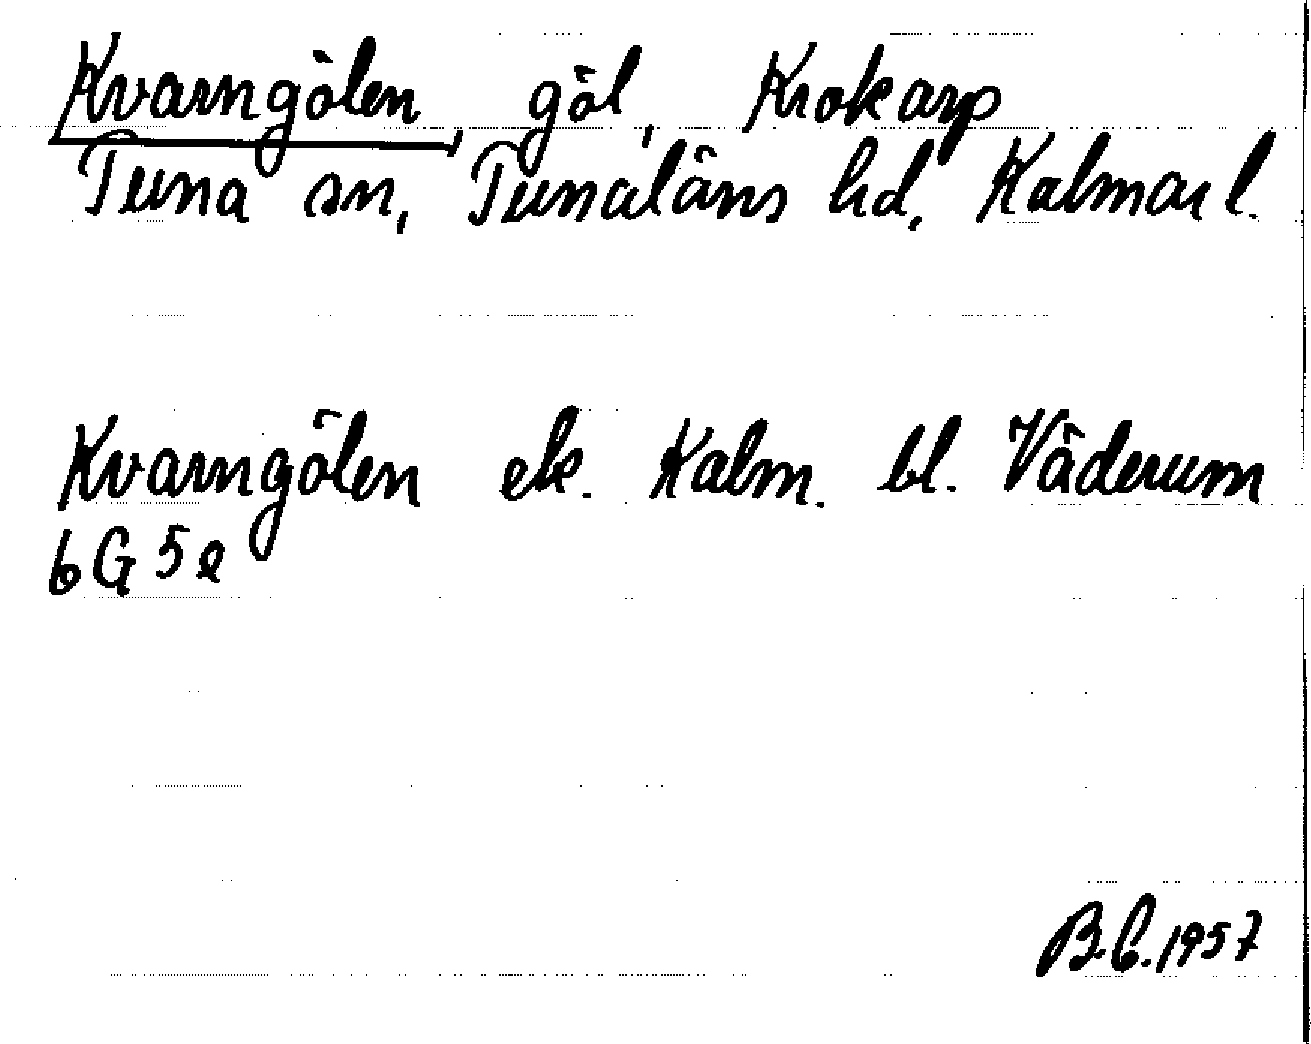 Kvarngölen, göl, Krokarp
Tuna sn, Tunaläns hd, Kalmar l.
Kvarngölen ek. Kalm. bl. Väderum
6G 5e
B.C. 1957